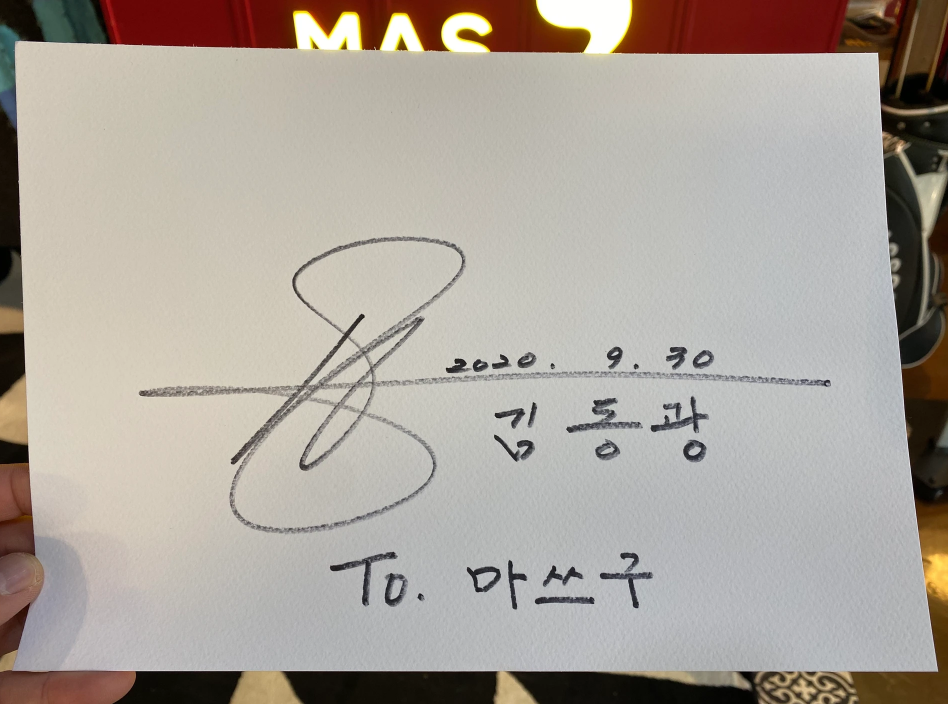 MAS
2020. 9. 30
김동광
To. 마쓰구